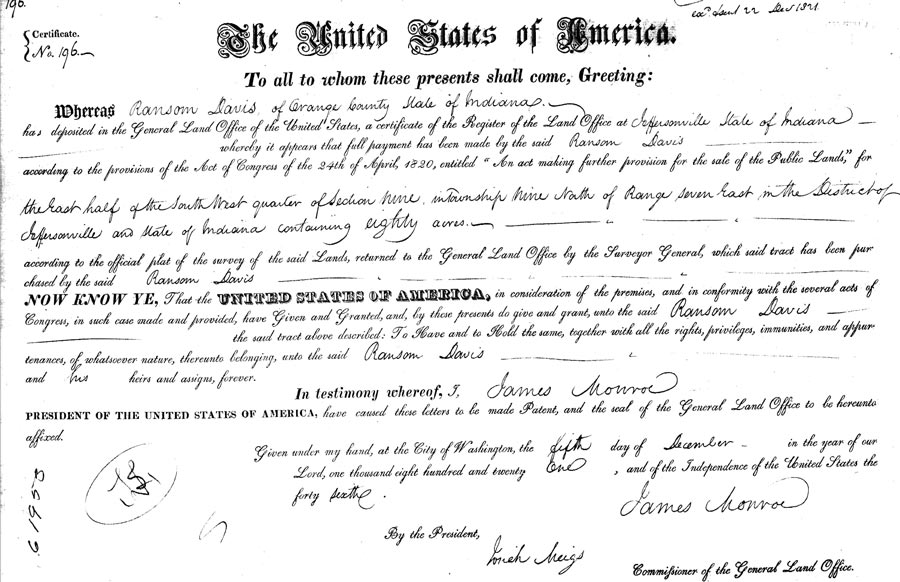 196.
Certificate.
No. 196.
22 Decr 1821
The United States of America.
To all to whom these presents shall come, Greeting:
Whereas Ransom Davis, of Orange County State of Indiana.
has deposited in the General Land Office of the United States, a certificate of the Register of the Land Office at Jeffersonville State of Indiana
whereby it appears that full payment has been made by the said Ransom Davis
according to the provisions of the Act of Congress of the 24th of April, 1820, entitled "An act making further provision for the sale of the Public Lands," for
the East half of the South West quarter of Section Nine, in township Nine North of Range seven East, in the District of
Jeffersonville and State of Indiana containing eighty acres.
according to the official plat of the survey of the said Lands, returned to the General Land Office by the Surveyor General, which said tract has been pur
chased by the said Ransom Davis
NOW KNOW YE, That the UNITED STATES OF AMERICA, in consideration of the premises, and in conformity with the several acts of
Congress, in such case made and provided, have Given and Granted, and, by these presents do give and grant, unto the said Ransom Davis
the said tract above described: To Have and to Hold the same, together with all the rights, privileges, immunities, and appur
tenances, of whatsoever nature, thereunto belonging, unto the said Ransom Davis
and his heirs and assigns, forever.
In testimony whereof, I, James Monroe
PRESIDENT OF THE UNITED STATES OF AMERICA, have caused these letters to be made Patent, and the seal of the General Land Office to be hereunto
affixed.
Given under my hand, at the City of Washington, the fifth day of December in the year of our
Lord, one thousand eight hundred and twenty One, and of the Independence of the United States the
forty sixth.
James Monroe
By the President,
Josiah Meigs
Commissioner of the General Land Office.
61953